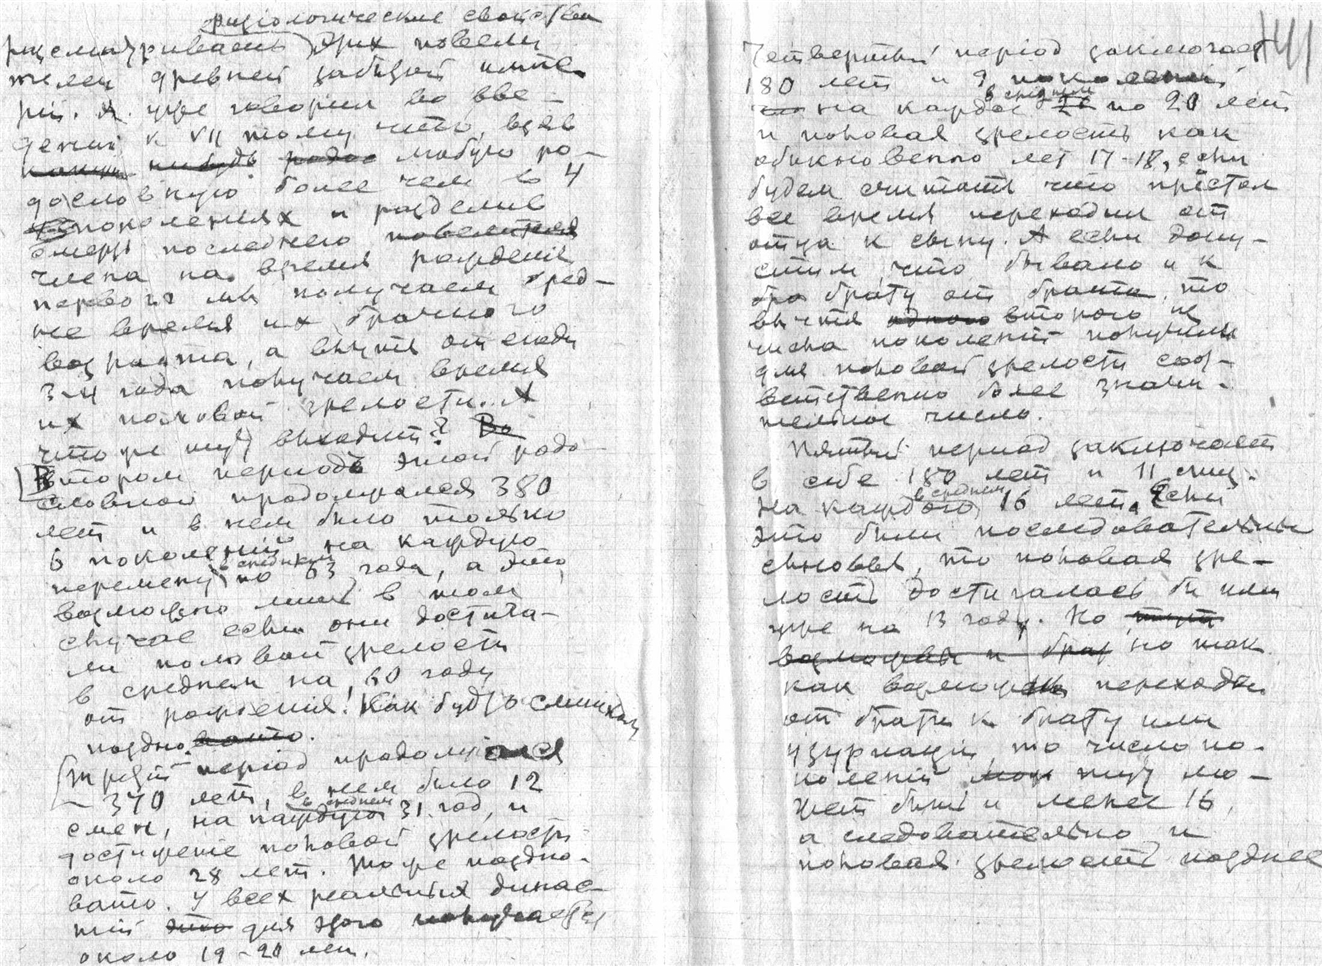 физiологические свойства
рассматриваемъ этих повели
телей древней забытой импе
рiи. Я уже говорил во вве-
денiи к VII тому что, взяв
какую нибудь родос любую ро-
дословную более чем в 4
поколениях и разделив
смерть последнего повелителя
члена на время рожденiя
первого мы получаем сред-
нее время их брачного
возраста, а вычтя отсюда
3-4 года получаем время
их половой зрелости. А
что же тут выходит? Во
Втором период этой родо-
словной продолжался 380
лет и в нем было только
6 поколенiй на каждую
перемену в среднем по 63 года, а это
возможно лишь в том
случае если они достига-
ли половой зрелости
в среднем на 60 году
от рожденiя! Как будто слишком
поздно вато.
Третiй период продолжался
370 лет, в нем было 12
смен, на каждую в среднем 31 год, и
достиженiе половой зрелости
около 28 лет. Тоже поздно-
вато. У всех реальных динас-
тiй это для этого получается
около 19-20 лет.
141
Четвертый перiод заключает
180 лет и 9 поколенiй
на каждое в среднем по 20 лет
и половая зрелость как
обыкновенно лет 17-18, если
будем считать что престол
все время переходил от
отца к сыну. А если допу-
стим, что бывало и к
бра брату от брата, то
вычтя одного второго из
числа поколенiй получим
для половой зрелости соот-
ветственно более значи-
тельное число.
Пятый период заключает
в себе 180 лет и 11 лиц.
На каждого в среднем 16 лет. Если
это были последовательные
сыновья, то половая зре-
лость достигалась бы ими
уже на 13 году. Но тут
возможны и брат но так
как возможен переходы
от брата к брату или
узурпацiи то число по-
коленiй мож тут мо-
жет быть и менее 16,
а следовательно и
половая зрелость позднее